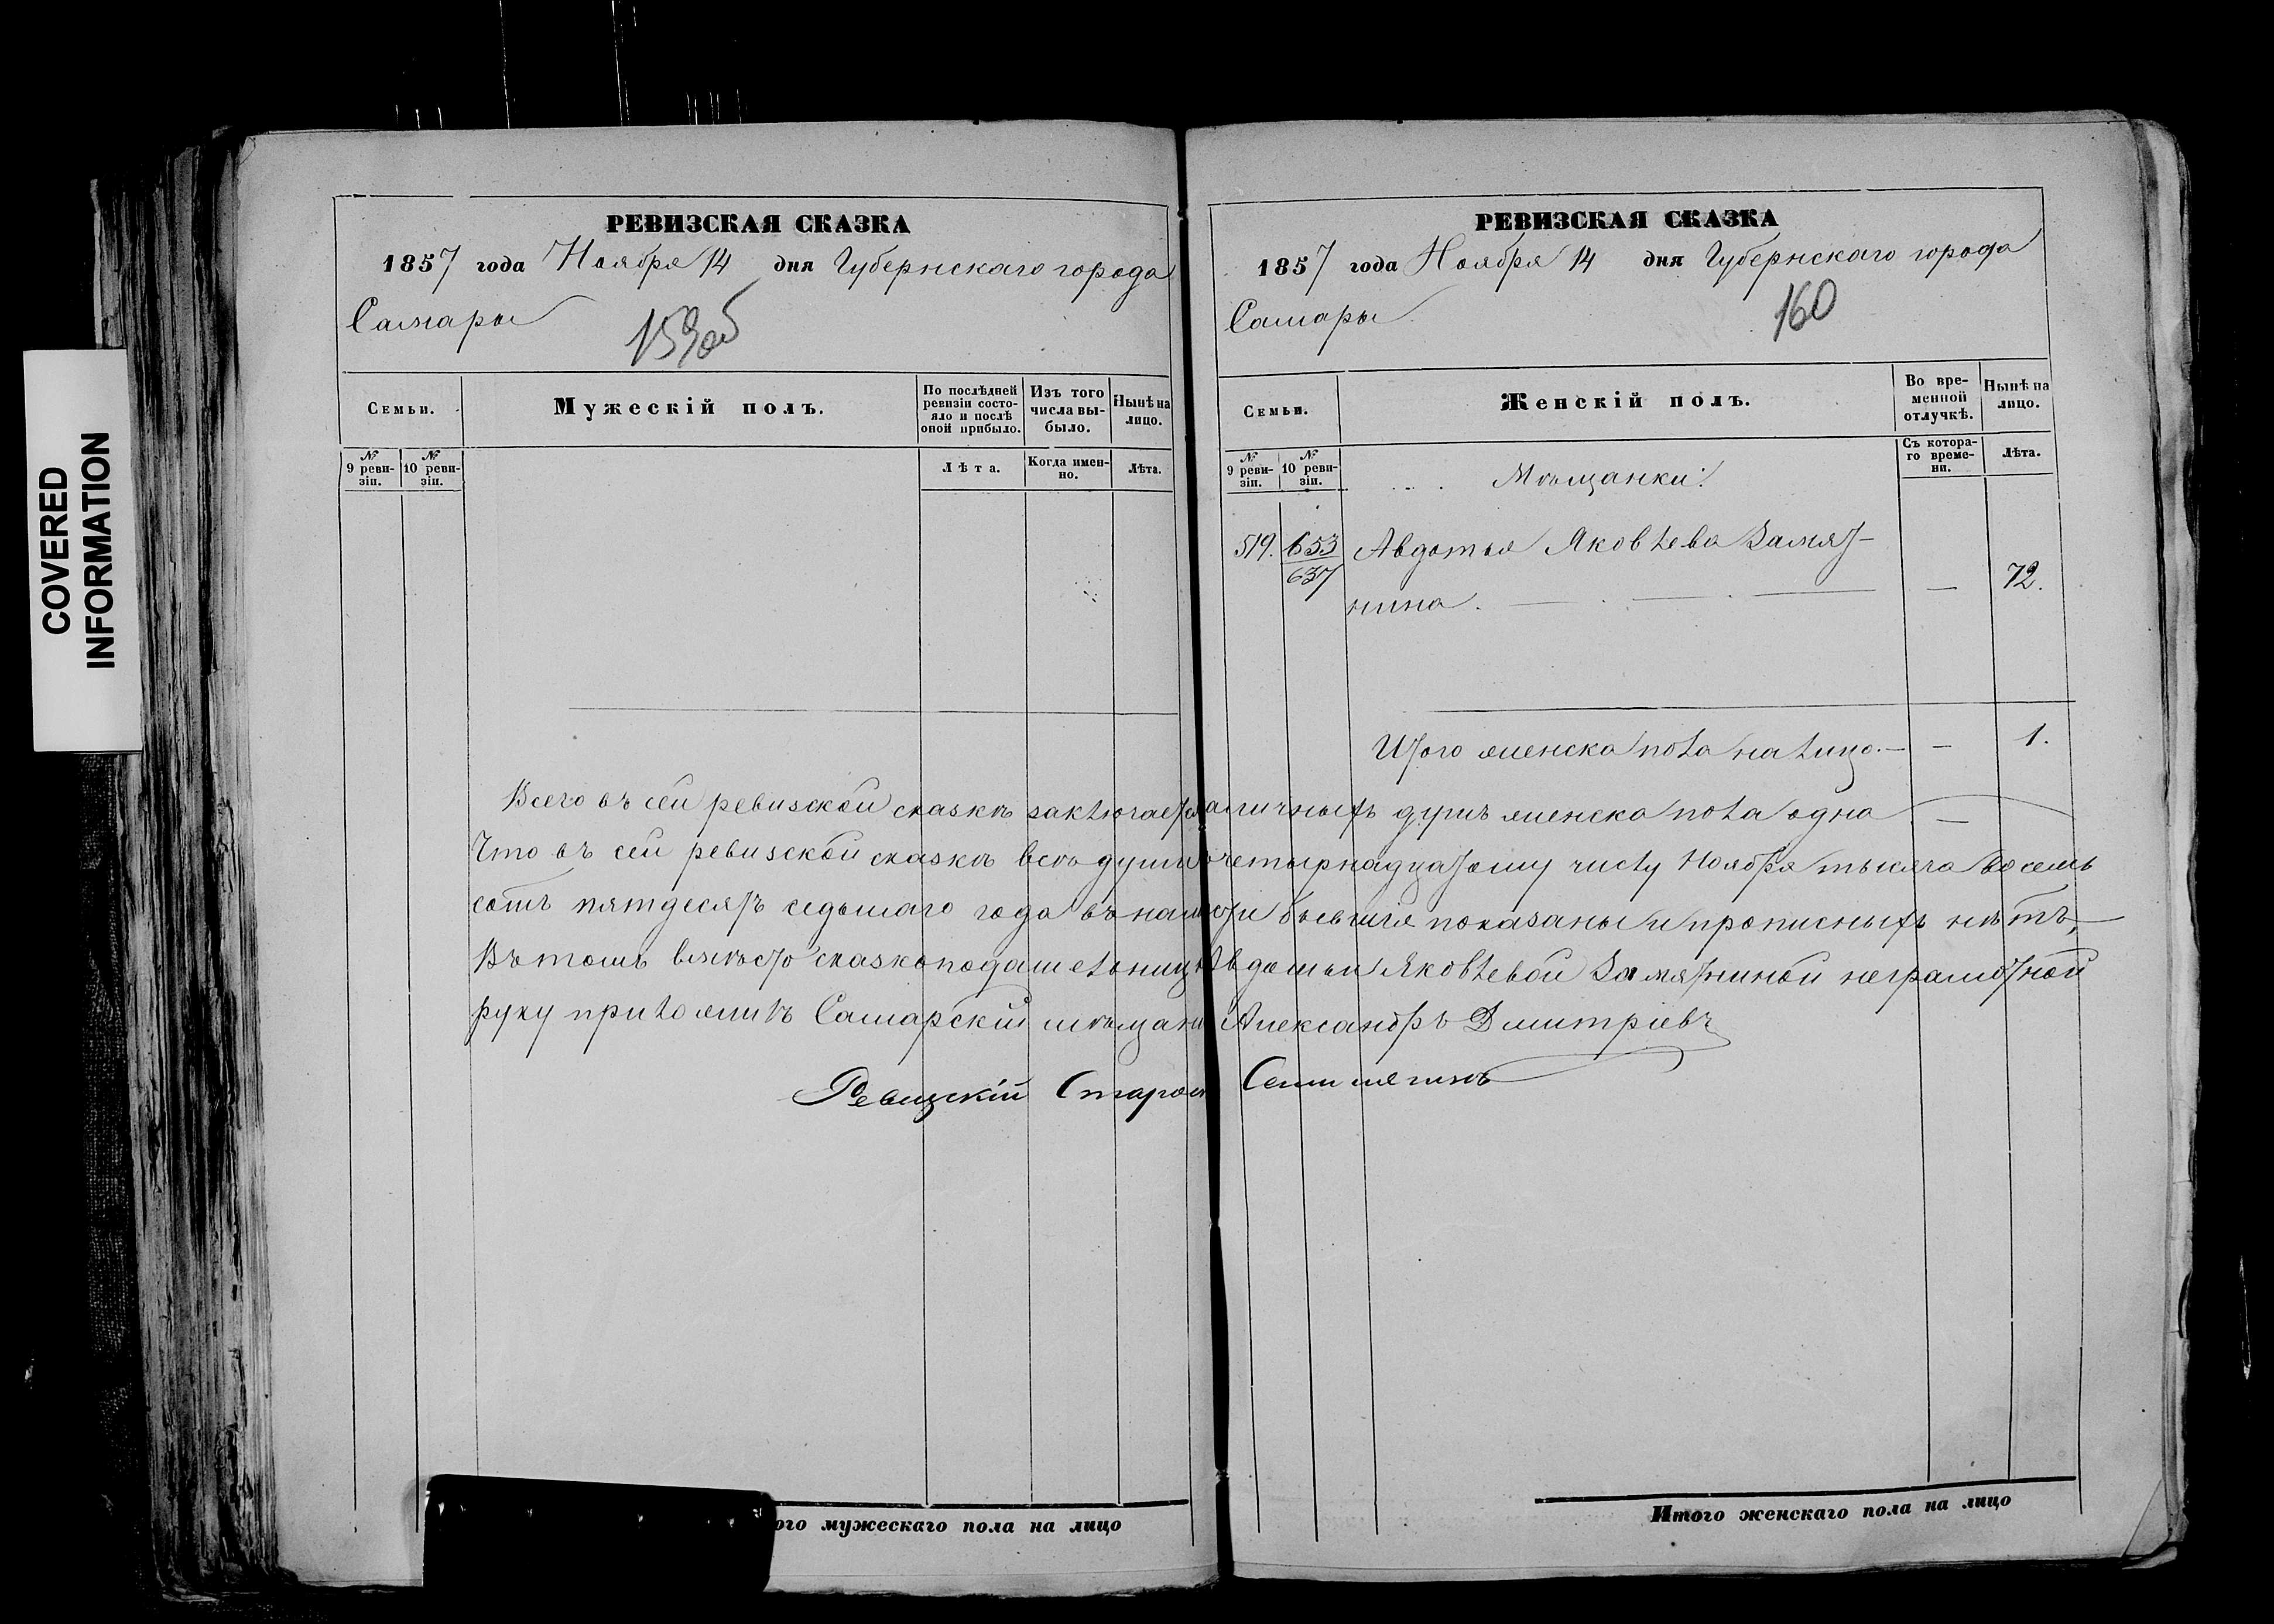 COVERED
INFORMATION
РЕВИЗСКАЯ СКАЗКА
1857 года Ноября 14 дня Губернскаго города
Самары
159об
Семьи.
Мужескій полъ.
По послѣдней ревизіи состояло и послѣ оной прибыло.
Изъ того числа выбыло.
Нынѣ на лицо.
№ 9 ревизіи.
№ 10 ревизіи.
Лѣта.
Когда именно.
Лѣта.
РЕВИЗСКАЯ СКАЗКА
1857 года Ноября 14 дня Губернскаго города
Самары
160
Семьи.
Женскій полъ.
Во временной отлучкѣ.
Нынѣ на лицо.
№ 9 ревизіи.
№ 10 ревизіи.
Мѣщанки:
Съ котораго времени.
Лѣта.
519. 653 Авдотья Яковлева Замят-
637
нина. — 72.
Итого женска пола на лицо. — — 1.
Всего въ сей ревизской сказкѣ заключается наличныхъ душъ женска пола одна —
Что въ сей ревизской сказкѣ всѣ души четырнадцатому числу Ноября тысяча восемь
сотъ пятдесятъ седьмаго года въ бывшія показаны и прописныхъ нѣтъ,
Въ томъ вмѣсто сказкоподательницы Авдотьи Яковлевой Замятниной неграмотной
руку приложилъ Самарскій мѣщани Александръ Дмитріевъ
Ревизскій Старос
ого мужескаго пола на лицо
Итого женскаго пола на лицо